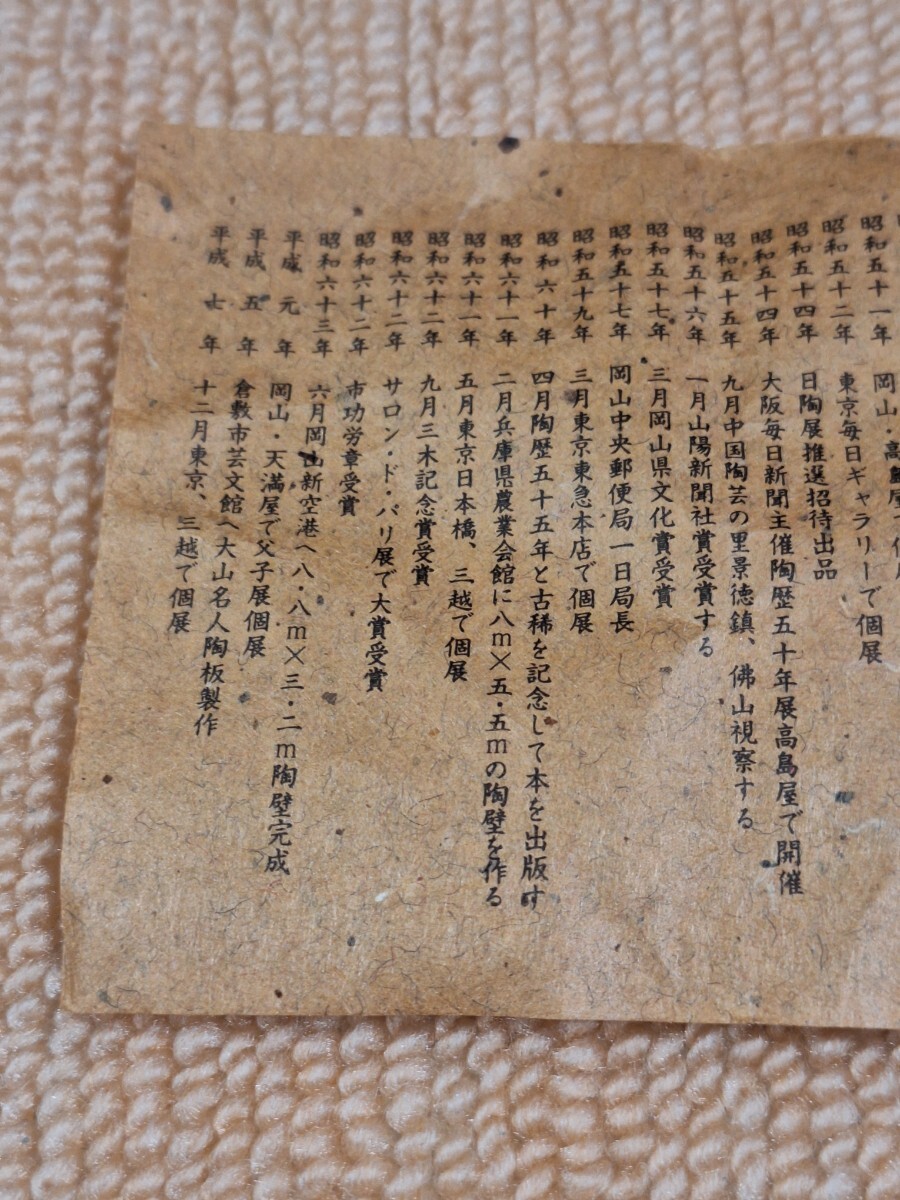 昭和五十一年 岡山・高島屋で個展
昭和五十二年 東京毎日ギャラリーで個展
昭和五十四年 日陶展推選招待出品
昭和五十四年 大阪毎日新聞主催陶歴五十年展高島屋で開催
昭和五十五年 九月中国陶芸の里景徳鎮、佛山視察する
昭和五十六年 一月山陽新聞社賞受賞する
昭和五十七年 三月岡山県文化賞受賞
昭和五十七年 岡山中央郵便局一日局長
昭和五十九年 三月東京東急本店で個展
昭和六十年 四月陶歴五十五年と古稀を記念して本を出版す
昭和六十一年 二月兵庫県農業会館に八m×五・五mの陶壁を作る
昭和六十一年 五月東京日本橋、三越で個展
昭和六十二年 九月三木記念賞受賞
昭和六十二年 サロン・ド・パリ展で大賞受賞
昭和六十二年 市功労章受賞
昭和六十三年 六月岡山新空港へ八・八m×三・二m陶壁完成
平成元年 岡山・天満屋で父子展個展
平成五年 倉敷市芸文館へ大山名人陶板製作
平成七年 十二月東京、三越で個展